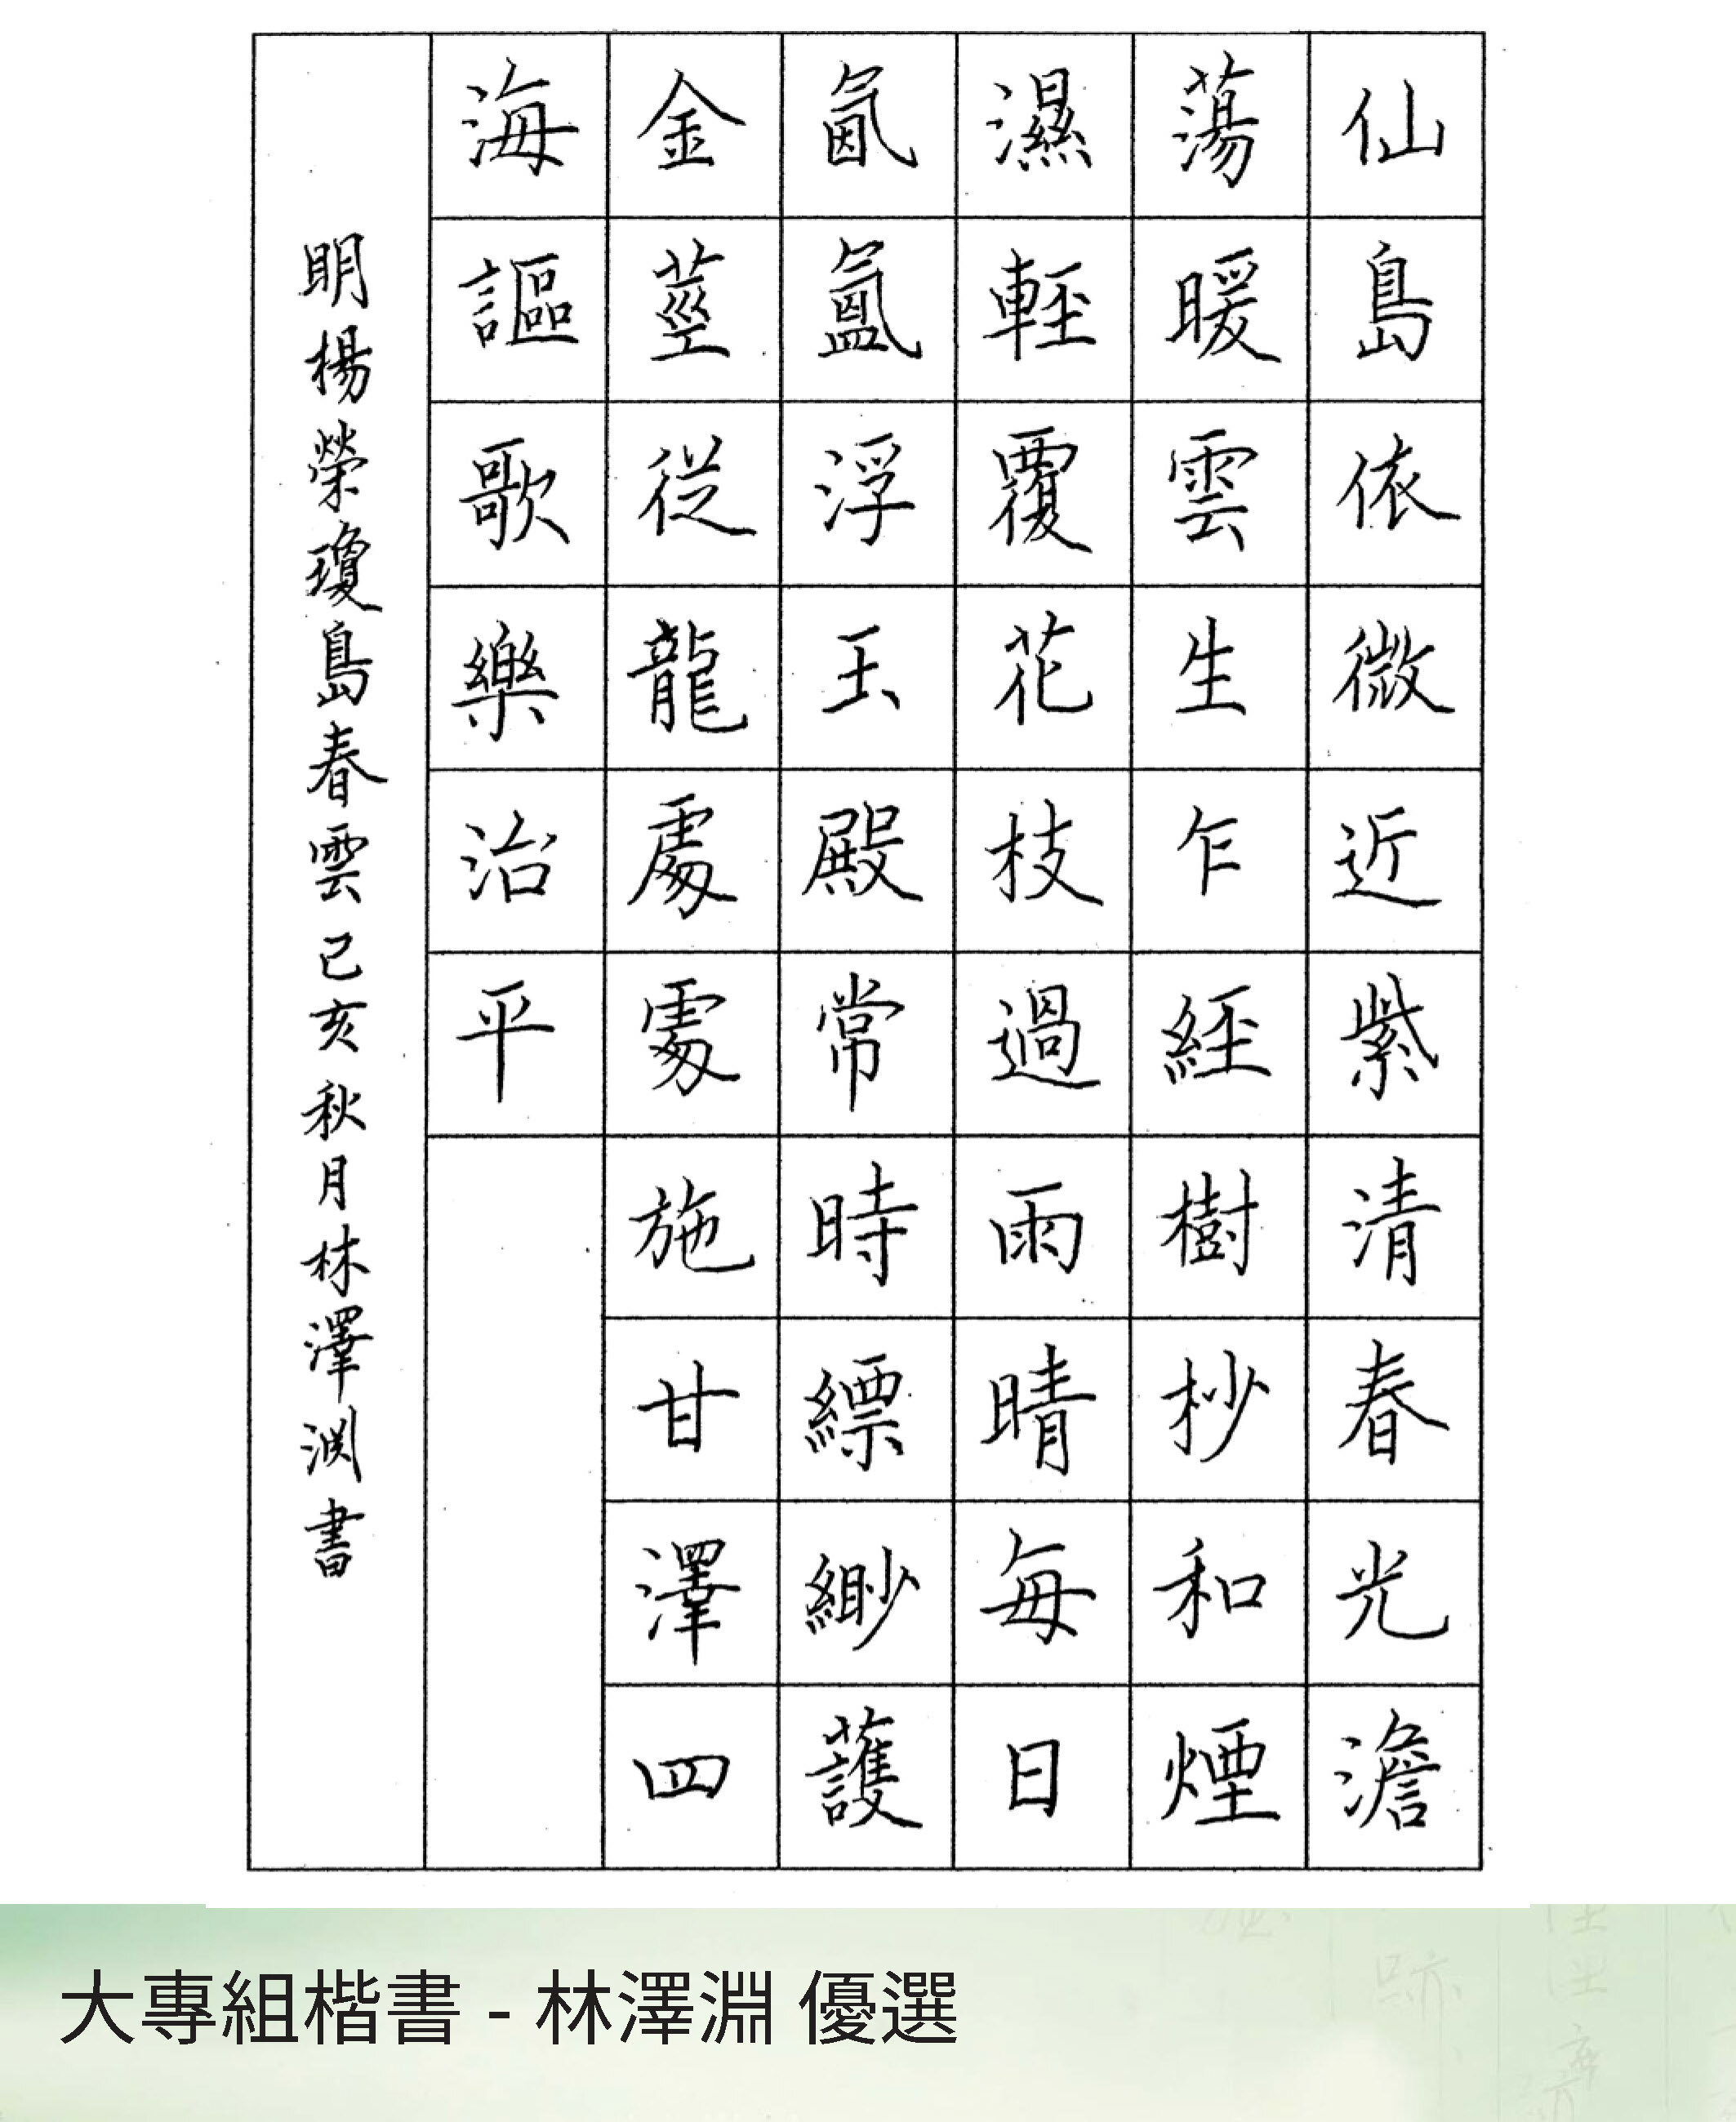 仙島依微近紫清春光澹
蕩暖雲生乍經樹杪和煙
濕輕覆花枝過雨晴每日
氤氳浮玉殿常時縹緲護
金莖從龍處處施甘澤四
海謳歌樂治平
明楊榮瓊島春雲己亥秋月林澤渊書
大專組楷書 - 林澤淵 優選